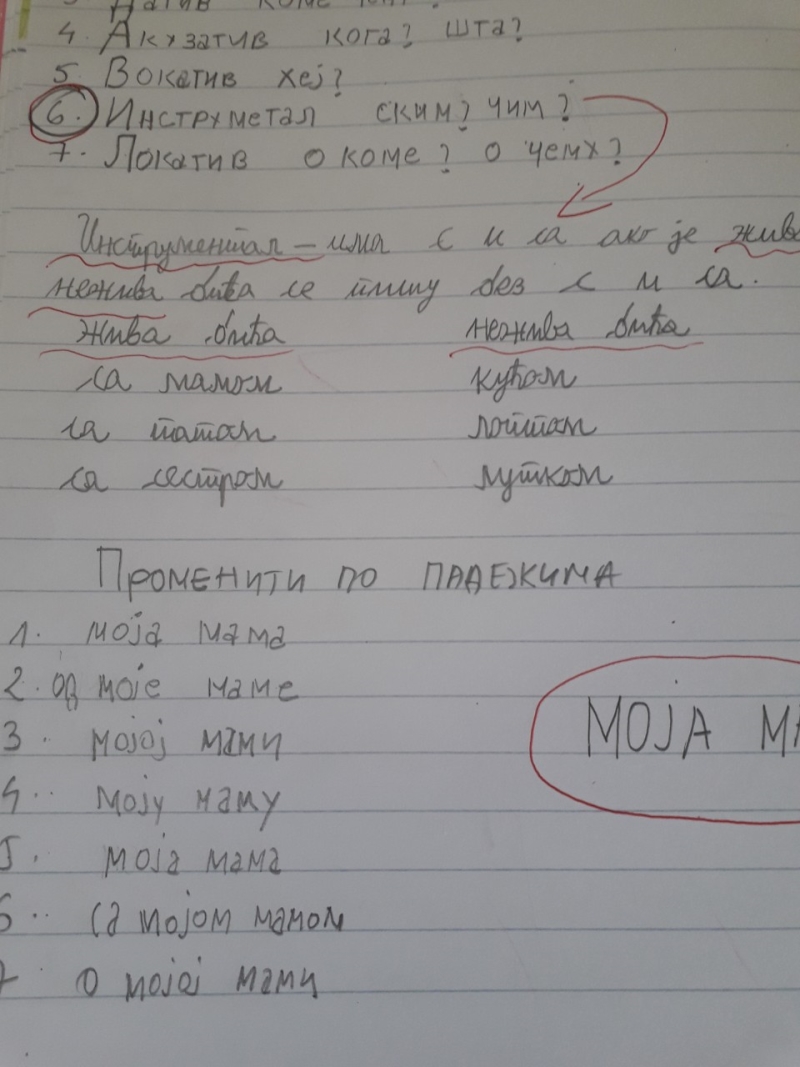 3. Датив коме
4. Акузатив кога? шта?
5. Вокатив хеј?
6. Инструметал ским? чим?
7. Локатив о коме? о чему?
Инструментал – има с и са ако је жива
нежива бића се пишу без с и са.
Жива бића нежива бића
са мамом кућом
са татом лоптом
са сестром мушком
Променити по падежима
1. моја мама
2. од моје маме
3. мојој мами
МОЈА МА
4. моју маму
5. моја мама
6. са мојом мамом
7 о мојој мами